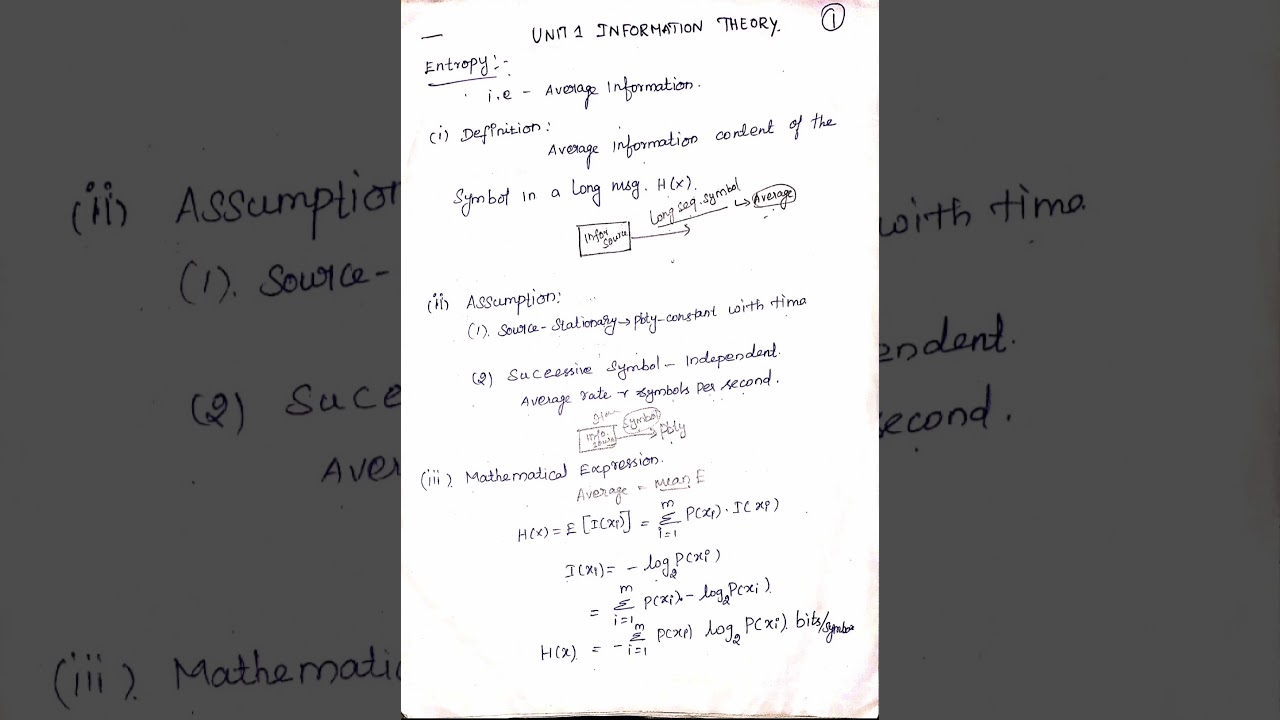 UNIT 1 INFORMATION THEORY. 1
Entropy:-
i.e - Average Information.
(i) Definition:
Average Information content of the
Symbol in a Long msg. H(x).
Infor source Long seq. symbol → Average
(ii) Assumption:
(1). Source-Stationary → pbly-constant with time
(2) Successive Symbol - Independent.
Average rate r symbols per second.
Info. source Symbol pbly
(iii) Mathematical Expression.
Average = mean E
H(x) = E [I(xi)] = m Σ i=1 P(xi) . I(xi)
I(xi) = - log2 P(xi)
= m Σ i=1 P(xi) . - log2 P(xi)
H(x) = - m Σ i=1 P(xi) log2 P(xi). bits/symbol